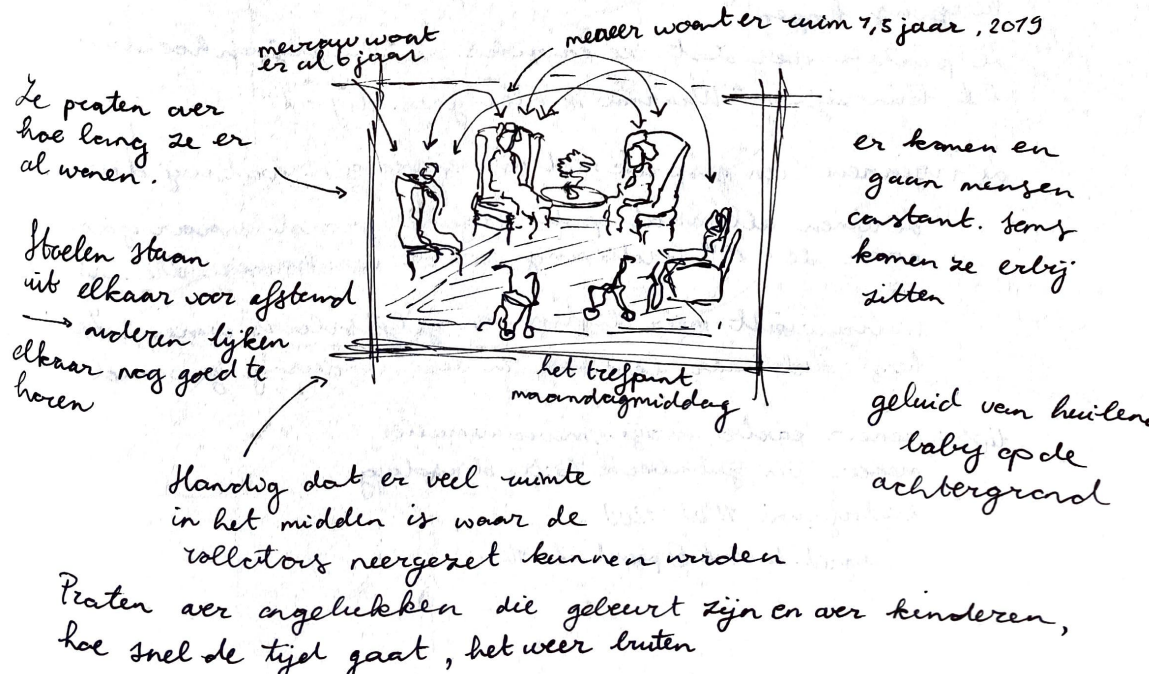 mevrouw woont
er al 6 jaar
meneer woont er ruim 1,5 jaar, 2019
Ze praten over
hoe lang ze er
al wonen.
Stoelen staan
uit elkaar voor afstand
→ ouderen lijken
elkaar nog goed te
horen
er komen en
gaan mensen
constant. soms
komen ze erbij
zitten
het trefpunt
maandagmiddag
geluid van huilende
baby op de
achtergrond
Handig dat er veel ruimte
in het midden is waar de
rollators neergezet kunnen worden
Praten over ongelukken die gebeurt zijn en over kinderen,
hoe snel de tijd gaat, het weer buiten